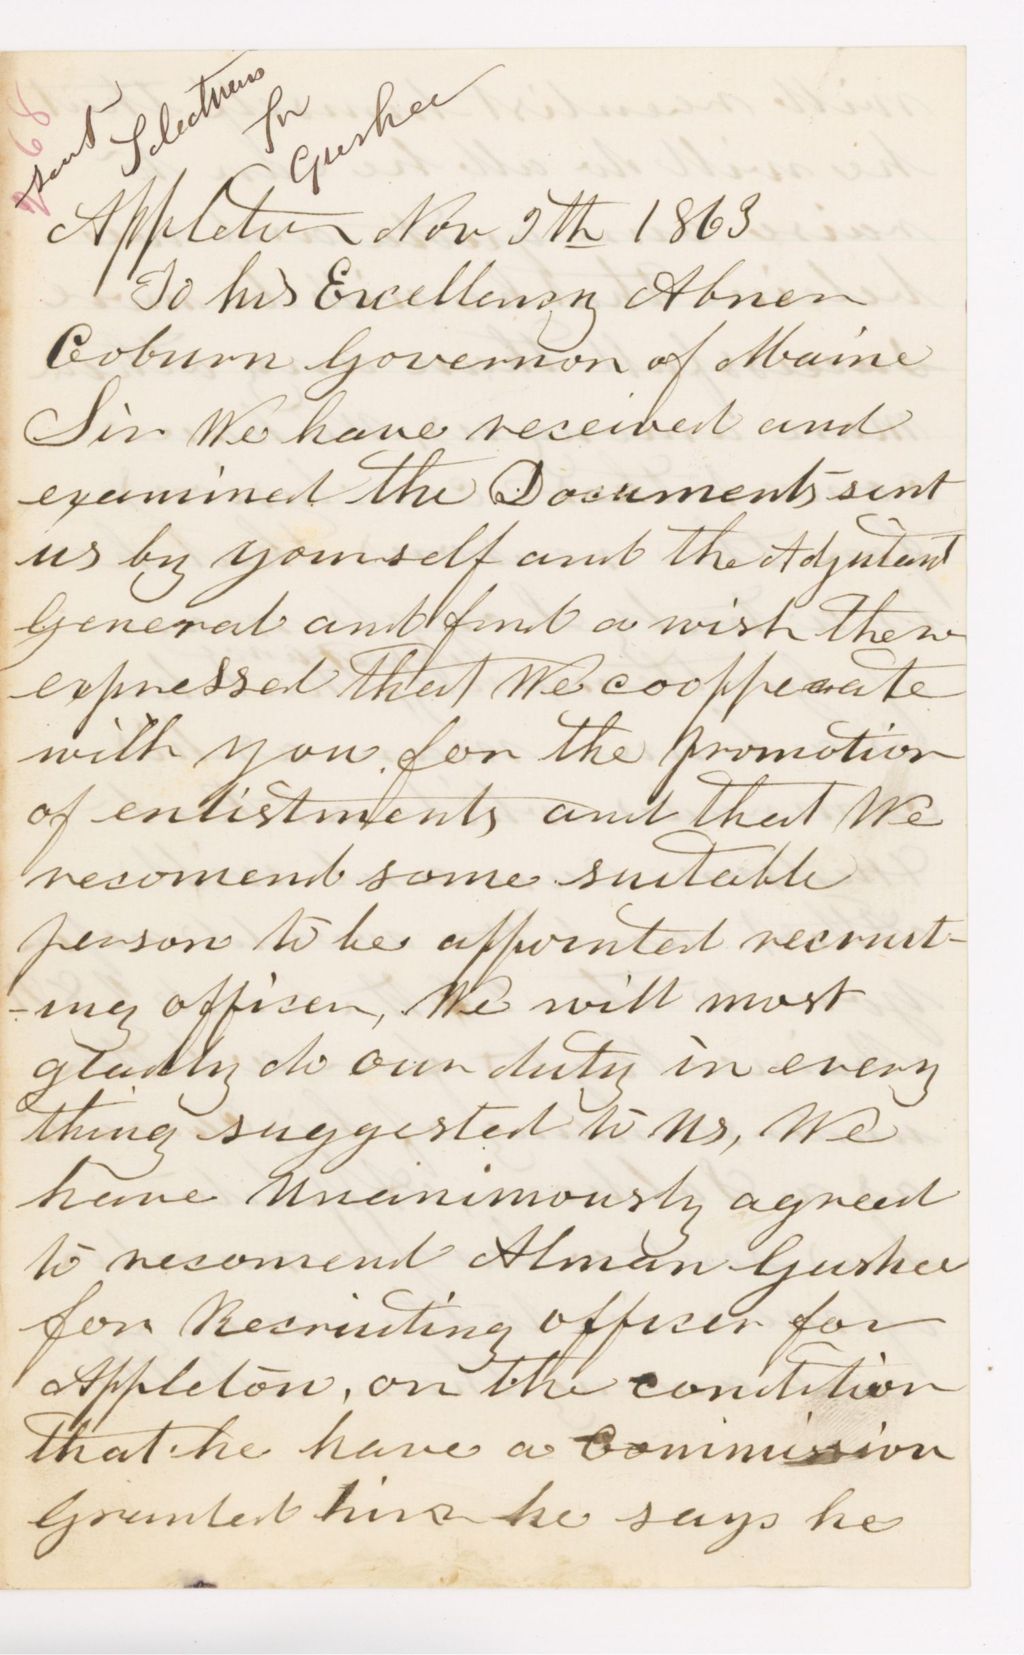 Selectmen
for
Gushee
Appleton Nov 9th 1863
To his Excellenzy Abner
Coburn Governor of Maine
Sir We have received and
examined the Documents sent
us by yourself and the Adjutant
General and find a wish there
expressed that We coopperate
with you for the promotion
of enlistments and that We
recomend some suitable
person to be appointed recruit-
-ing officer, We will most
gladly do our duty in every
thing suggested to us, We
have unanimously agreed
to recomend Alman Gushee
for Recruiting officer for
Appleton, on the condition
that he have a Commission
Granted him he says he